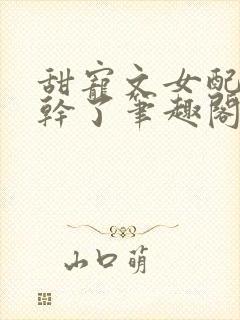 甜寵文女配
幹了筆趣閣
山口萌